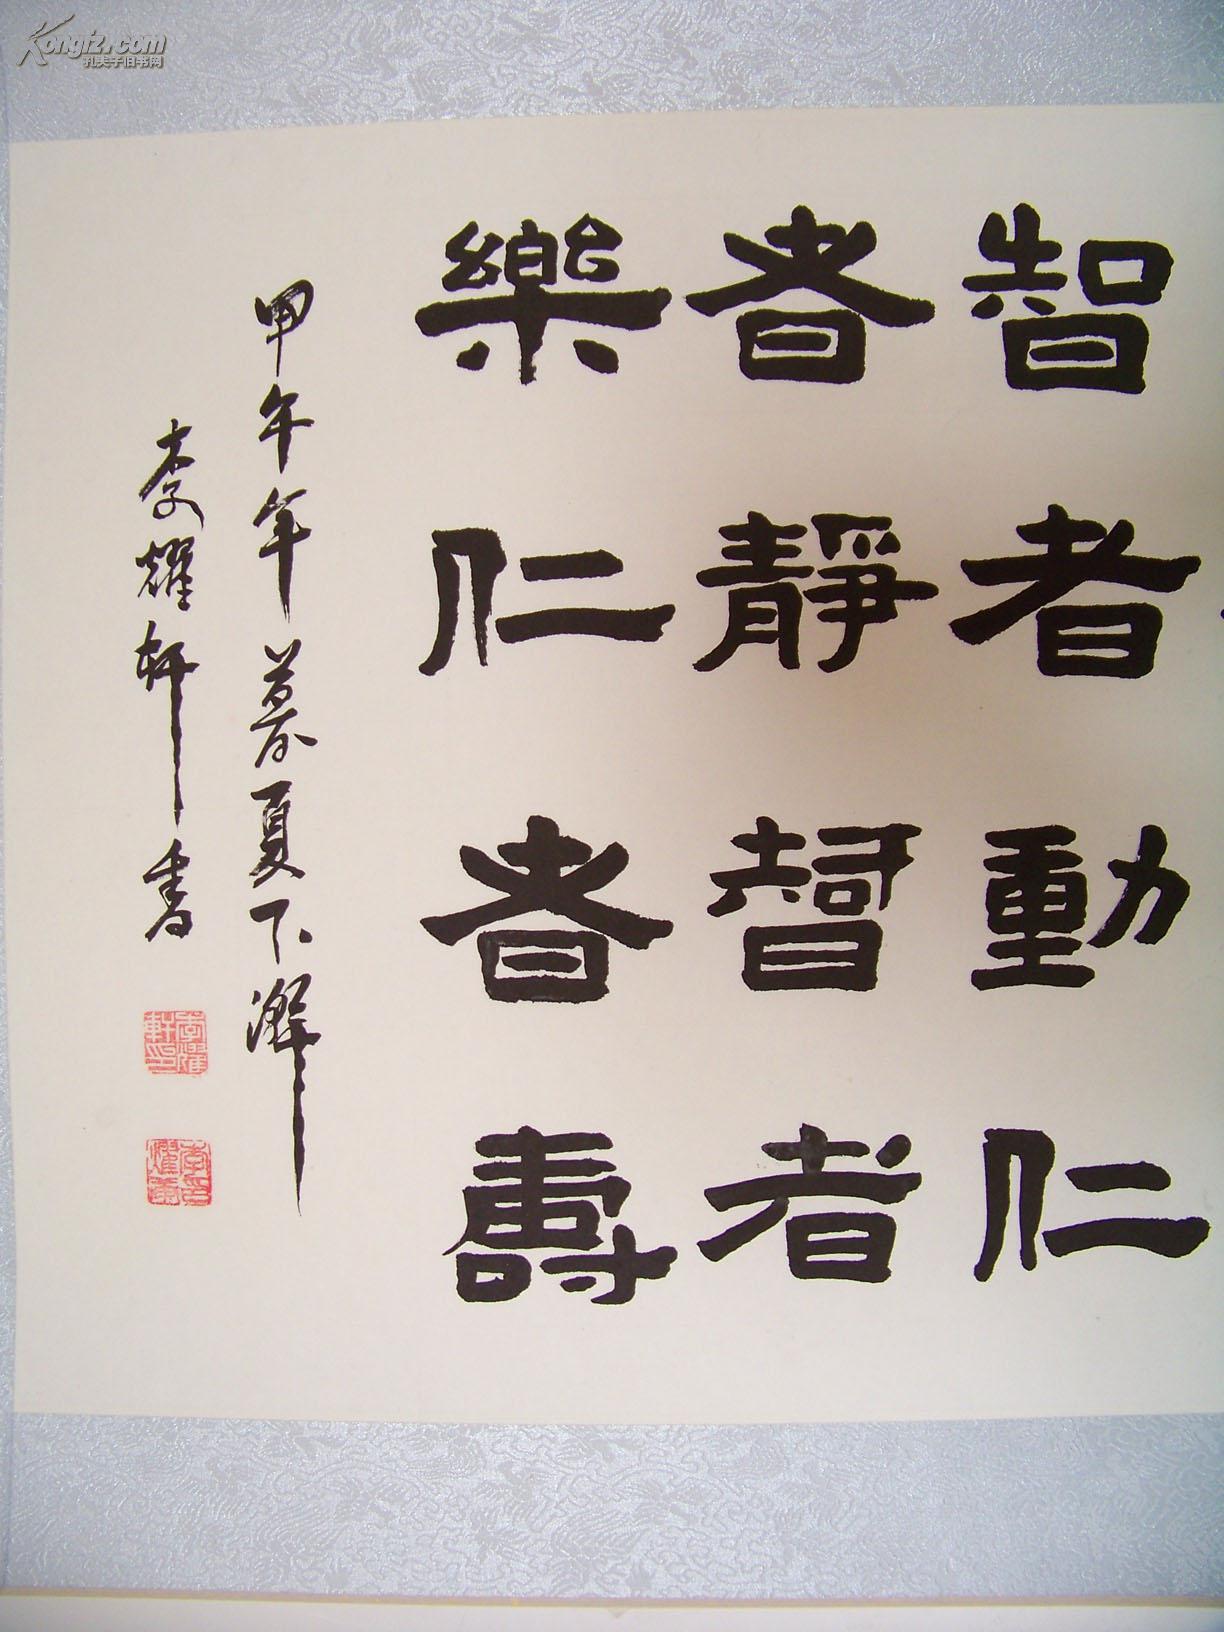 智者動仁
者靜智者
樂仁者壽
甲午年暮夏下澣
李耀軒書
李耀軒印
Kongfz.com
孔夫子旧书网